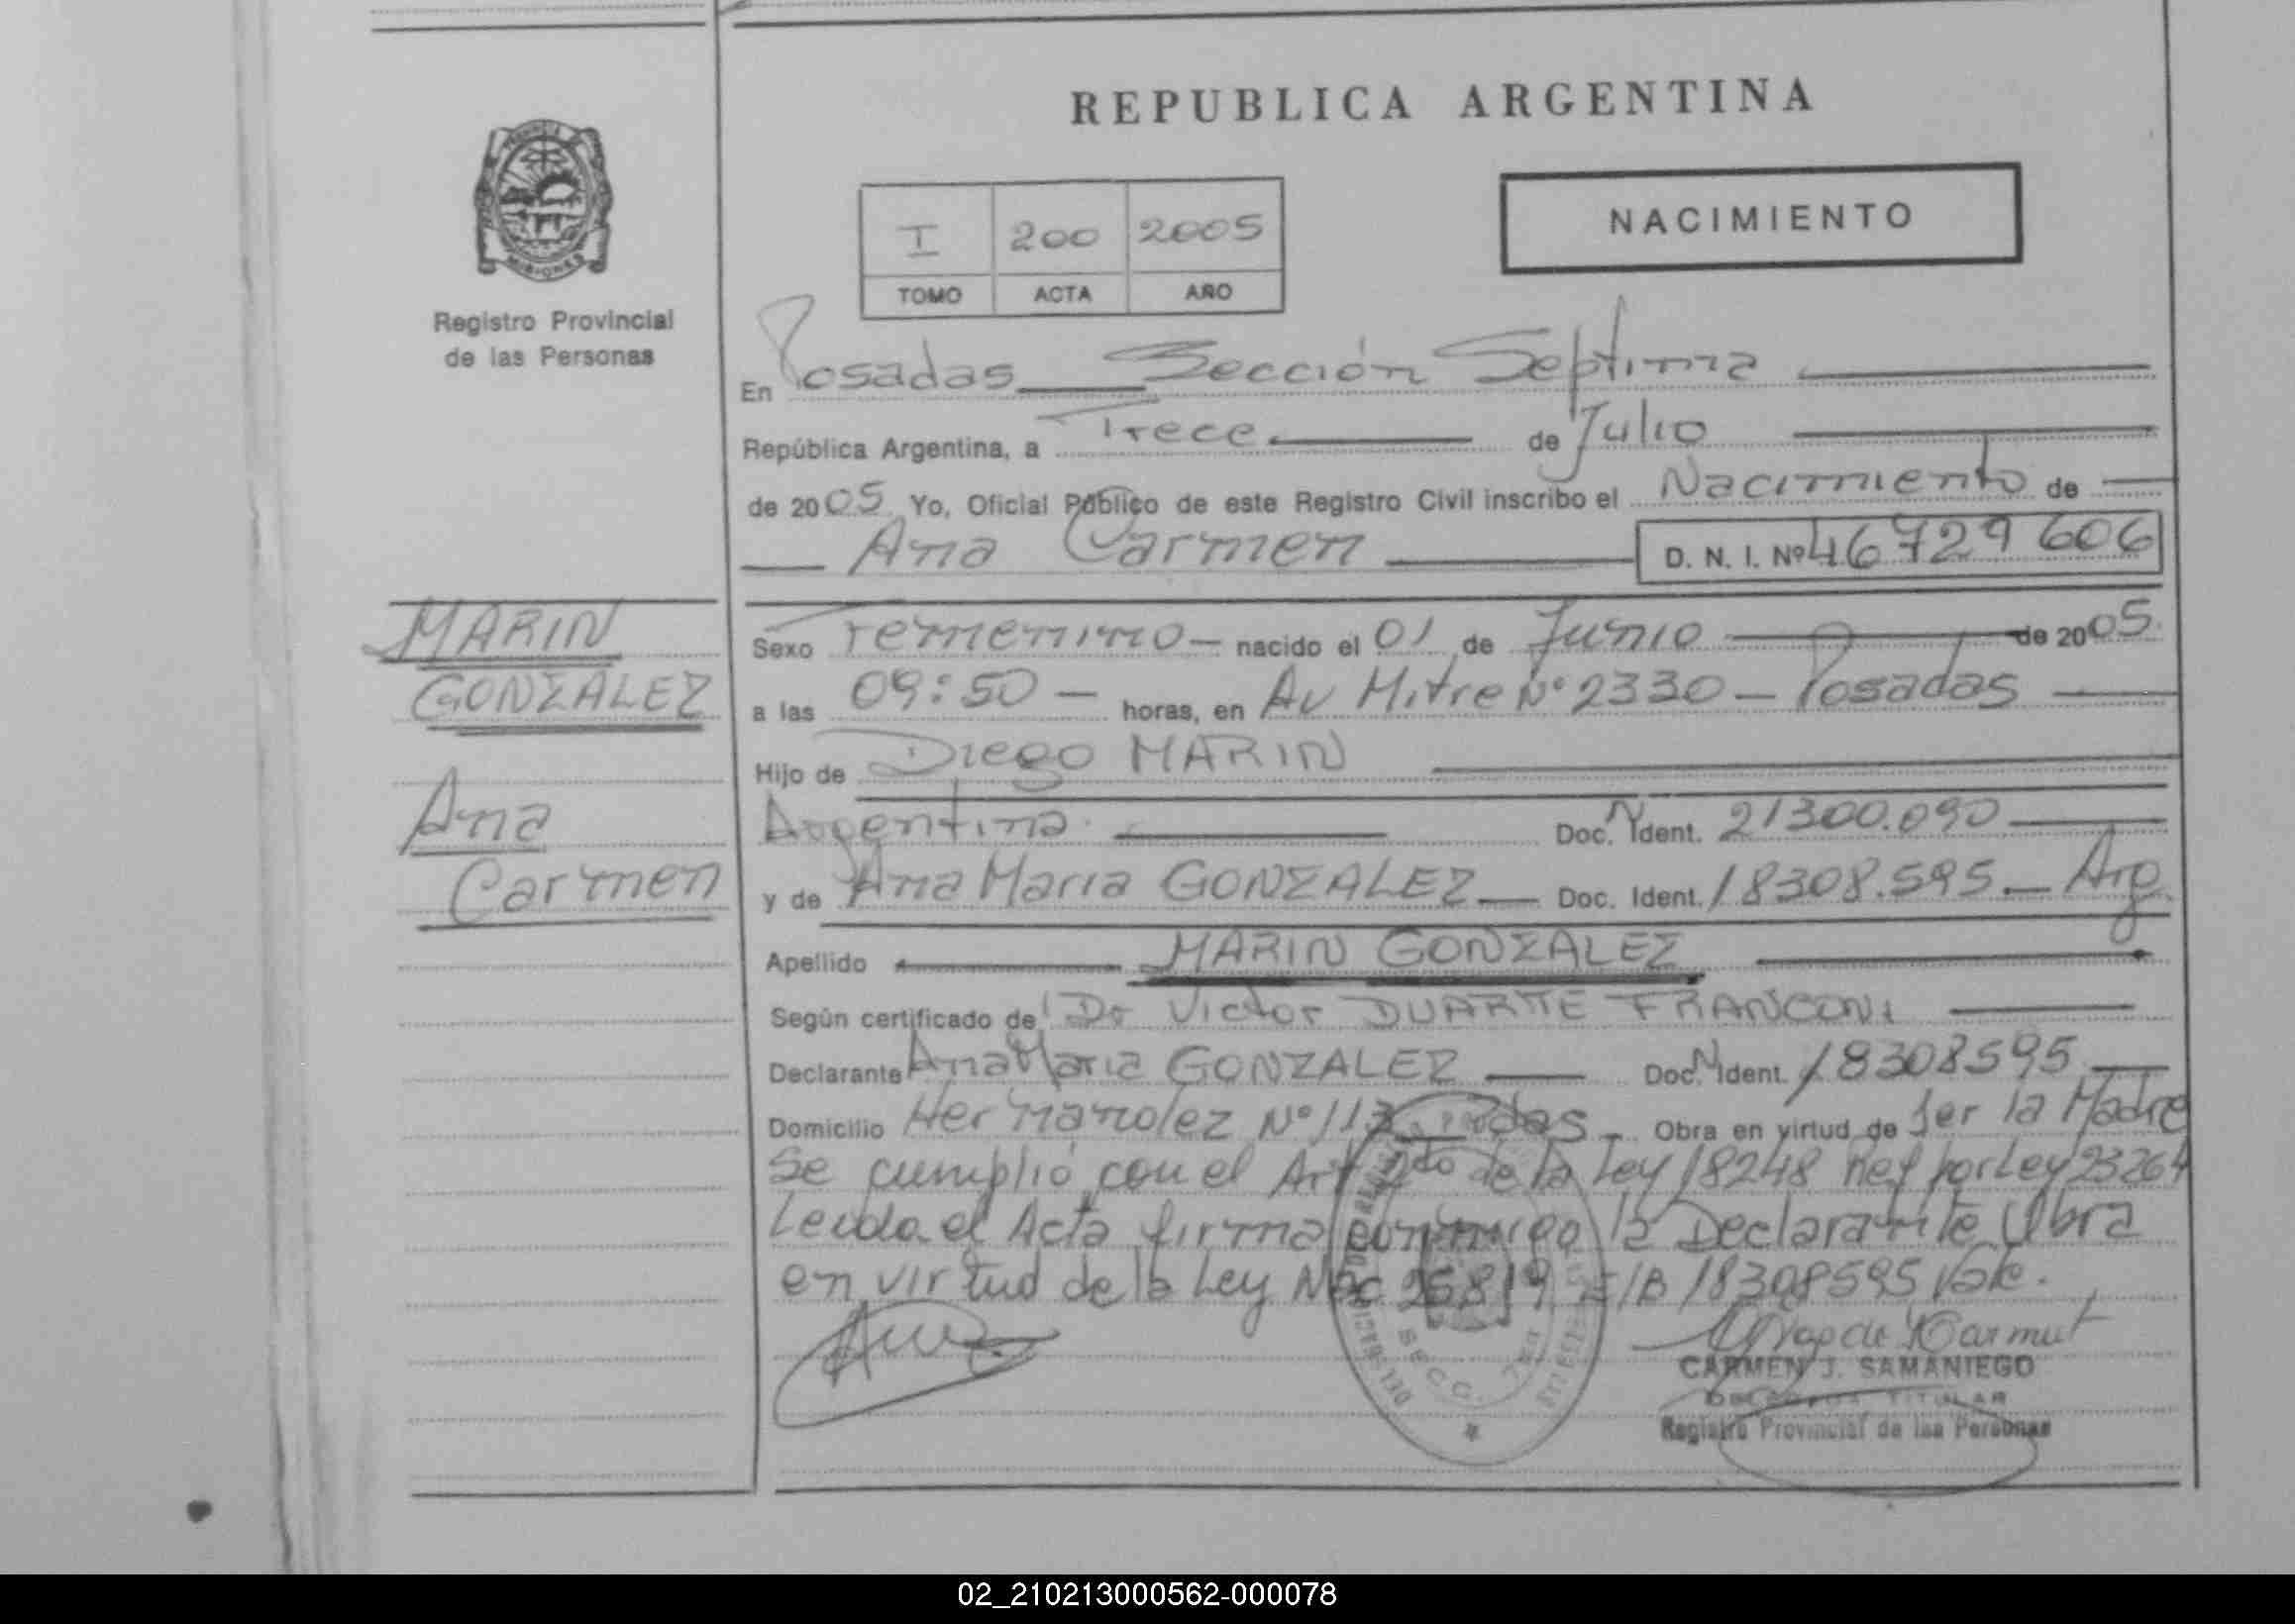 REPUBLICA ARGENTINA
NACIMIENTO
I 200 2005
TOMO ACTA AÑO
PROVINCIA DE
MISIONES
Registro Provincial
de las Personas
En Posadas Sección Septima
República Argentina, a Trece de Julio
de 2005 Yo, Oficial Público de este Registro Civil inscribo el Nacimiento de
Ana Carmen D. N. I. Nº 46729606
MARIN
GONZALEZ
Ana
Carmen
Sexo Femenino - nacido el 01 de Junio de 2005.
a las 09:50 - horas, en Av Mitre Nº 2330 - Posadas
Hijo de Diego MARIN
Argentina. Doc. N Ident. 21300.090
y de Ana Maria GONZALEZ Doc. Ident. 18308.595 Arg
Apellido MARIN GONZALEZ
Según certificado de Dr Victor DUARTTE FRANCONI
Declarante Ana Maria GONZALEZ Doc. N Ident. 18308595
Domicilio Nº 113 Obra en virtud de Ser la Madre
Se cumplió con el Art 2do de la Ley 18248 Ref por Ley 23264
Leida el Acta firma conmigo la Declarante Obra
en virtud de la Ley Nac E/B 18308595 Vale.
SECC. 7ma
CARMEN J. SAMANIEGO
TITULAR
Registro Provincial de las Personas
02_210213000562-000078